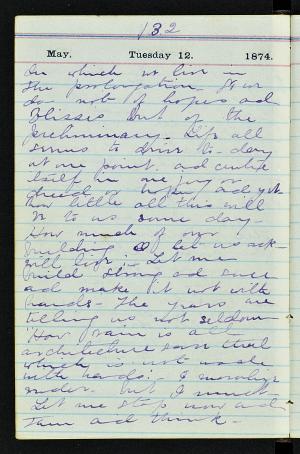 132
May. Tuesday 12. 1874.
in which we live in
the prolongation. It is
not of hopes and
Blisses but of the
preliminary. Life all
seems to drive to-day
at one point. ad centre
itself in one joy or
dread or hope. ad yet
how little all this will
be to us some day
How much of our
building let us ask
will live. Let me
build strong ad sure
ad make it not with
hands. The years are
telling us not seldom
"How vain is all
architecture save that
which is not made
with hands". I moralize
But I must
Let me stop now ad
turn ad think.